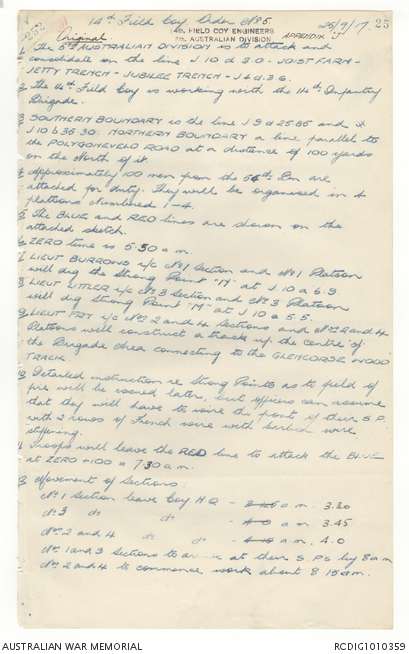 14th Field Coy Order No 5 25/9/17 23
Original
14th FIELD COY ENGINEERS
5th AUSTRALIAN DIVISION
APPENDIX J
1 The 5th AUSTRALIAN DIVISION is to attack and
consolidate on the line J 10 d 3.0 - JOIST FARM -
JETTY TRENCH - JUBILEE TRENCH - J 4 d 3.6.
2 The 14th Field Coy is working with the 14th Infantry
Brigade.
3 SOUTHERN BOUNDARY is the line J 9 d 25.85 and
J 10 b 36.30 NORTHERN BOUNDARY a line parallel to
the POLYGONEVELD ROAD at a distance of 100 yards
on the North of it.
4 Approximately 100 men from the 56th Bn are
attached for duty. They will be organised in 4
platoons numbered 1-4.
5 The BLUE and RED lines are shown on the
attached sketch.
6 ZERO time is 5 50 a m.
7 LIEUT BURROWS i/c No 1 Section and No 1 Platoon
will dig the Strong Point "N" at J 10 a 6.3
8 LIEUT LITLER i/c No 3 Section and No 3 Platoon
will dig Strong Point "M" at J 10 a 5.5.
9 LIEUT FRY i/c Nos 2 and 4 Sections and Nos 2 and 4
Platoons will construct a track up the centre of
the Brigade Area connecting to the GLENCORSE WOOD
TRACK.
10 Detailed instruction re Strong Points as to field of
fire will be issued later, but officers can assume
that they will have to wire the front of their S.P.
with 2 rows of French wire with barbed wire
stiffening.
11 Troops will leave the RED line to attack the BLUE
at ZERO +100 = 7 30 a.m.
12 Movement of Sections:
No 1 Section leave Coy H.Q. - a m 3.30
No 3 do do - a m 3.45
Nos 2 and 4 do do - a m. 4.0
Nos 1 and 3 Sections to arrive at their S.Ps by 8 a m
Nos 2 and 4 to commence work about 8 15 a m.
AUSTRALIAN WAR MEMORIAL
RCDIG1010359